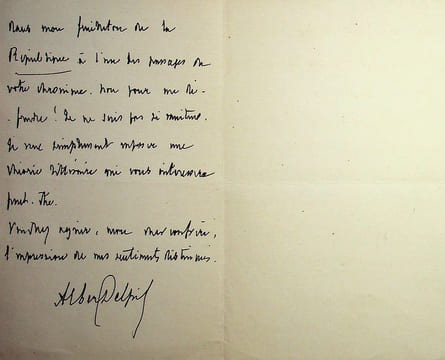 dans mon feuilleton de la
République à l'un des passages de
votre chronique. Non pour me dé-
-fendre ! Je ne suis pas si
Je veux simplement exposer une
théorie littéraire qui vous intéressera
peut-être.
Veuillez agréer, mon cher confrère,
l'impression de mes sentiments distingués.
Albert Delpit